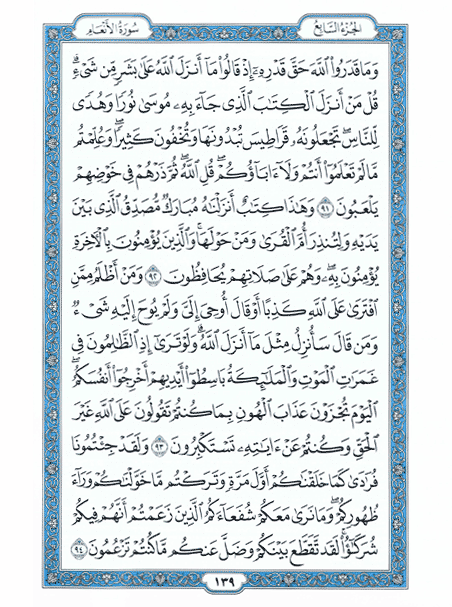 الجزء السابع
سورة الأنعام
وَمَا قَدَرُوا۟ ٱللَّهَ حَقَّ قَدْرِهِۦٓ إِذْ قَالُوا۟ مَآ أَنزَلَ ٱللَّهُ عَلَىٰ بَشَرٍ مِّن شَىْءٍ ۗ
قُلْ مَنْ أَنزَلَ ٱلْكِتَٰبَ ٱلَّذِى جَآءَ بِهِۦ مُوسَىٰ نُورًا وَهُدًى
لِّلنَّاسِ ۖ تَجْعَلُونَهُۥ قَرَاطِيسَ تُبْدُونَهَا وَتُخْفُونَ كَثِيرًا ۖ وَعُلِّمْتُم
مَّا لَمْ تَعْلَمُوٓا۟ أَنتُمْ وَلَآ ءَابَآؤُكُمْ ۖ قُلِ ٱللَّهُ ۖ ثُمَّ ذَرْهُمْ فِى خَوْضِهِمْ
يَلْعَبُونَ ٩١ وَهَٰذَا كِتَٰبٌ أَنزَلْنَٰهُ مُبَارَكٌ مُّصَدِّقُ ٱلَّذِى بَيْنَ
يَدَيْهِ وَلِتُنذِرَ أُمَّ ٱلْقُرَىٰ وَمَنْ حَوْلَهَا ۚ وَٱلَّذِينَ يُؤْمِنُونَ بِٱلْءَاخِرَةِ
يُؤْمِنُونَ بِهِۦ ۖ وَهُمْ عَلَىٰ صَلَاتِهِمْ يُحَافِظُونَ ٩٢ وَمَنْ أَظْلَمُ مِمَّنِ
ٱفْتَرَىٰ عَلَى ٱللَّهِ كَذِبًا أَوْ قَالَ أُوحِىَ إِلَىَّ وَلَمْ يُوحَ إِلَيْهِ شَىْءٌ
وَمَن قَالَ سَأُنزِلُ مِثْلَ مَآ أَنزَلَ ٱللَّهُ ۗ وَلَوْ تَرَىٰٓ إِذِ ٱلظَّٰلِمُونَ فِى
غَمَرَٰتِ ٱلْمَوْتِ وَٱلْمَلَٰٓئِكَةُ بَاسِطُوٓا۟ أَيْدِيهِمْ أَخْرِجُوٓا۟ أَنفُسَكُمُ ۖ
ٱلْيَوْمَ تُجْزَوْنَ عَذَابَ ٱلْهُونِ بِمَا كُنتُمْ تَقُولُونَ عَلَى ٱللَّهِ غَيْرَ
ٱلْحَقِّ وَكُنتُمْ عَنْ ءَايَٰتِهِۦ تَسْتَكْبِرُونَ ٩٣ وَلَقَدْ جِئْتُمُونَا
فُرَٰدَىٰ كَمَا خَلَقْنَٰكُمْ أَوَّلَ مَرَّةٍ وَتَرَكْتُم مَّا خَوَّلْنَٰكُمْ وَرَآءَ
ظُهُورِكُمْ ۖ وَمَا نَرَىٰ مَعَكُمْ شُفَعَآءَكُمُ ٱلَّذِينَ زَعَمْتُمْ أَنَّهُمْ فِيكُمْ
شُرَكَٰٓؤُا۟ ۚ لَقَد تَّقَطَّعَ بَيْنَكُمْ وَضَلَّ عَنكُم مَّا كُنتُمْ تَزْعُمُونَ ٩٤
١٣٩